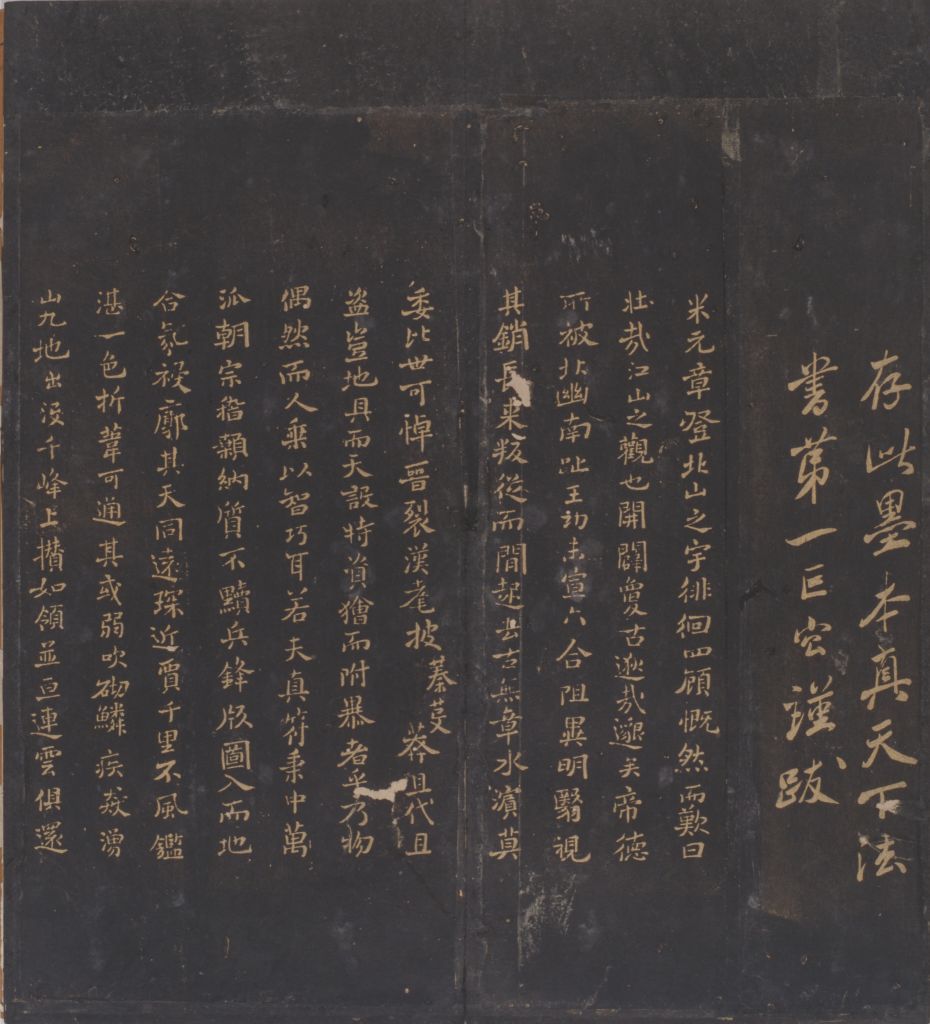 存此墨本真天下法
書第一臣瑾跋
米元章登北山之宇徘徊四顧慨然而歎曰
壯哉江山之觀也開闢敻古逖哉邈矣帝德
所被北幽南趾王功未宣六合阻異明翳視
其銷長来叛從而間起去古無章水濱莫
委比世可悼晉裂漢耄披蓁芟莽代且
盜豈地具而天設特首獪而附暴者乎乃物
偶然而人乘以智巧耳若夫真符秉中萬
派朝宗稽顙納質不黷兵鋒版圖入而地
合氛祲廓其天同遠琛近賈千里不風鑑
湛一色折葦可通其或弱吹鱗疾湧
山九地出没千峰上攢如領並亘連雲俱還